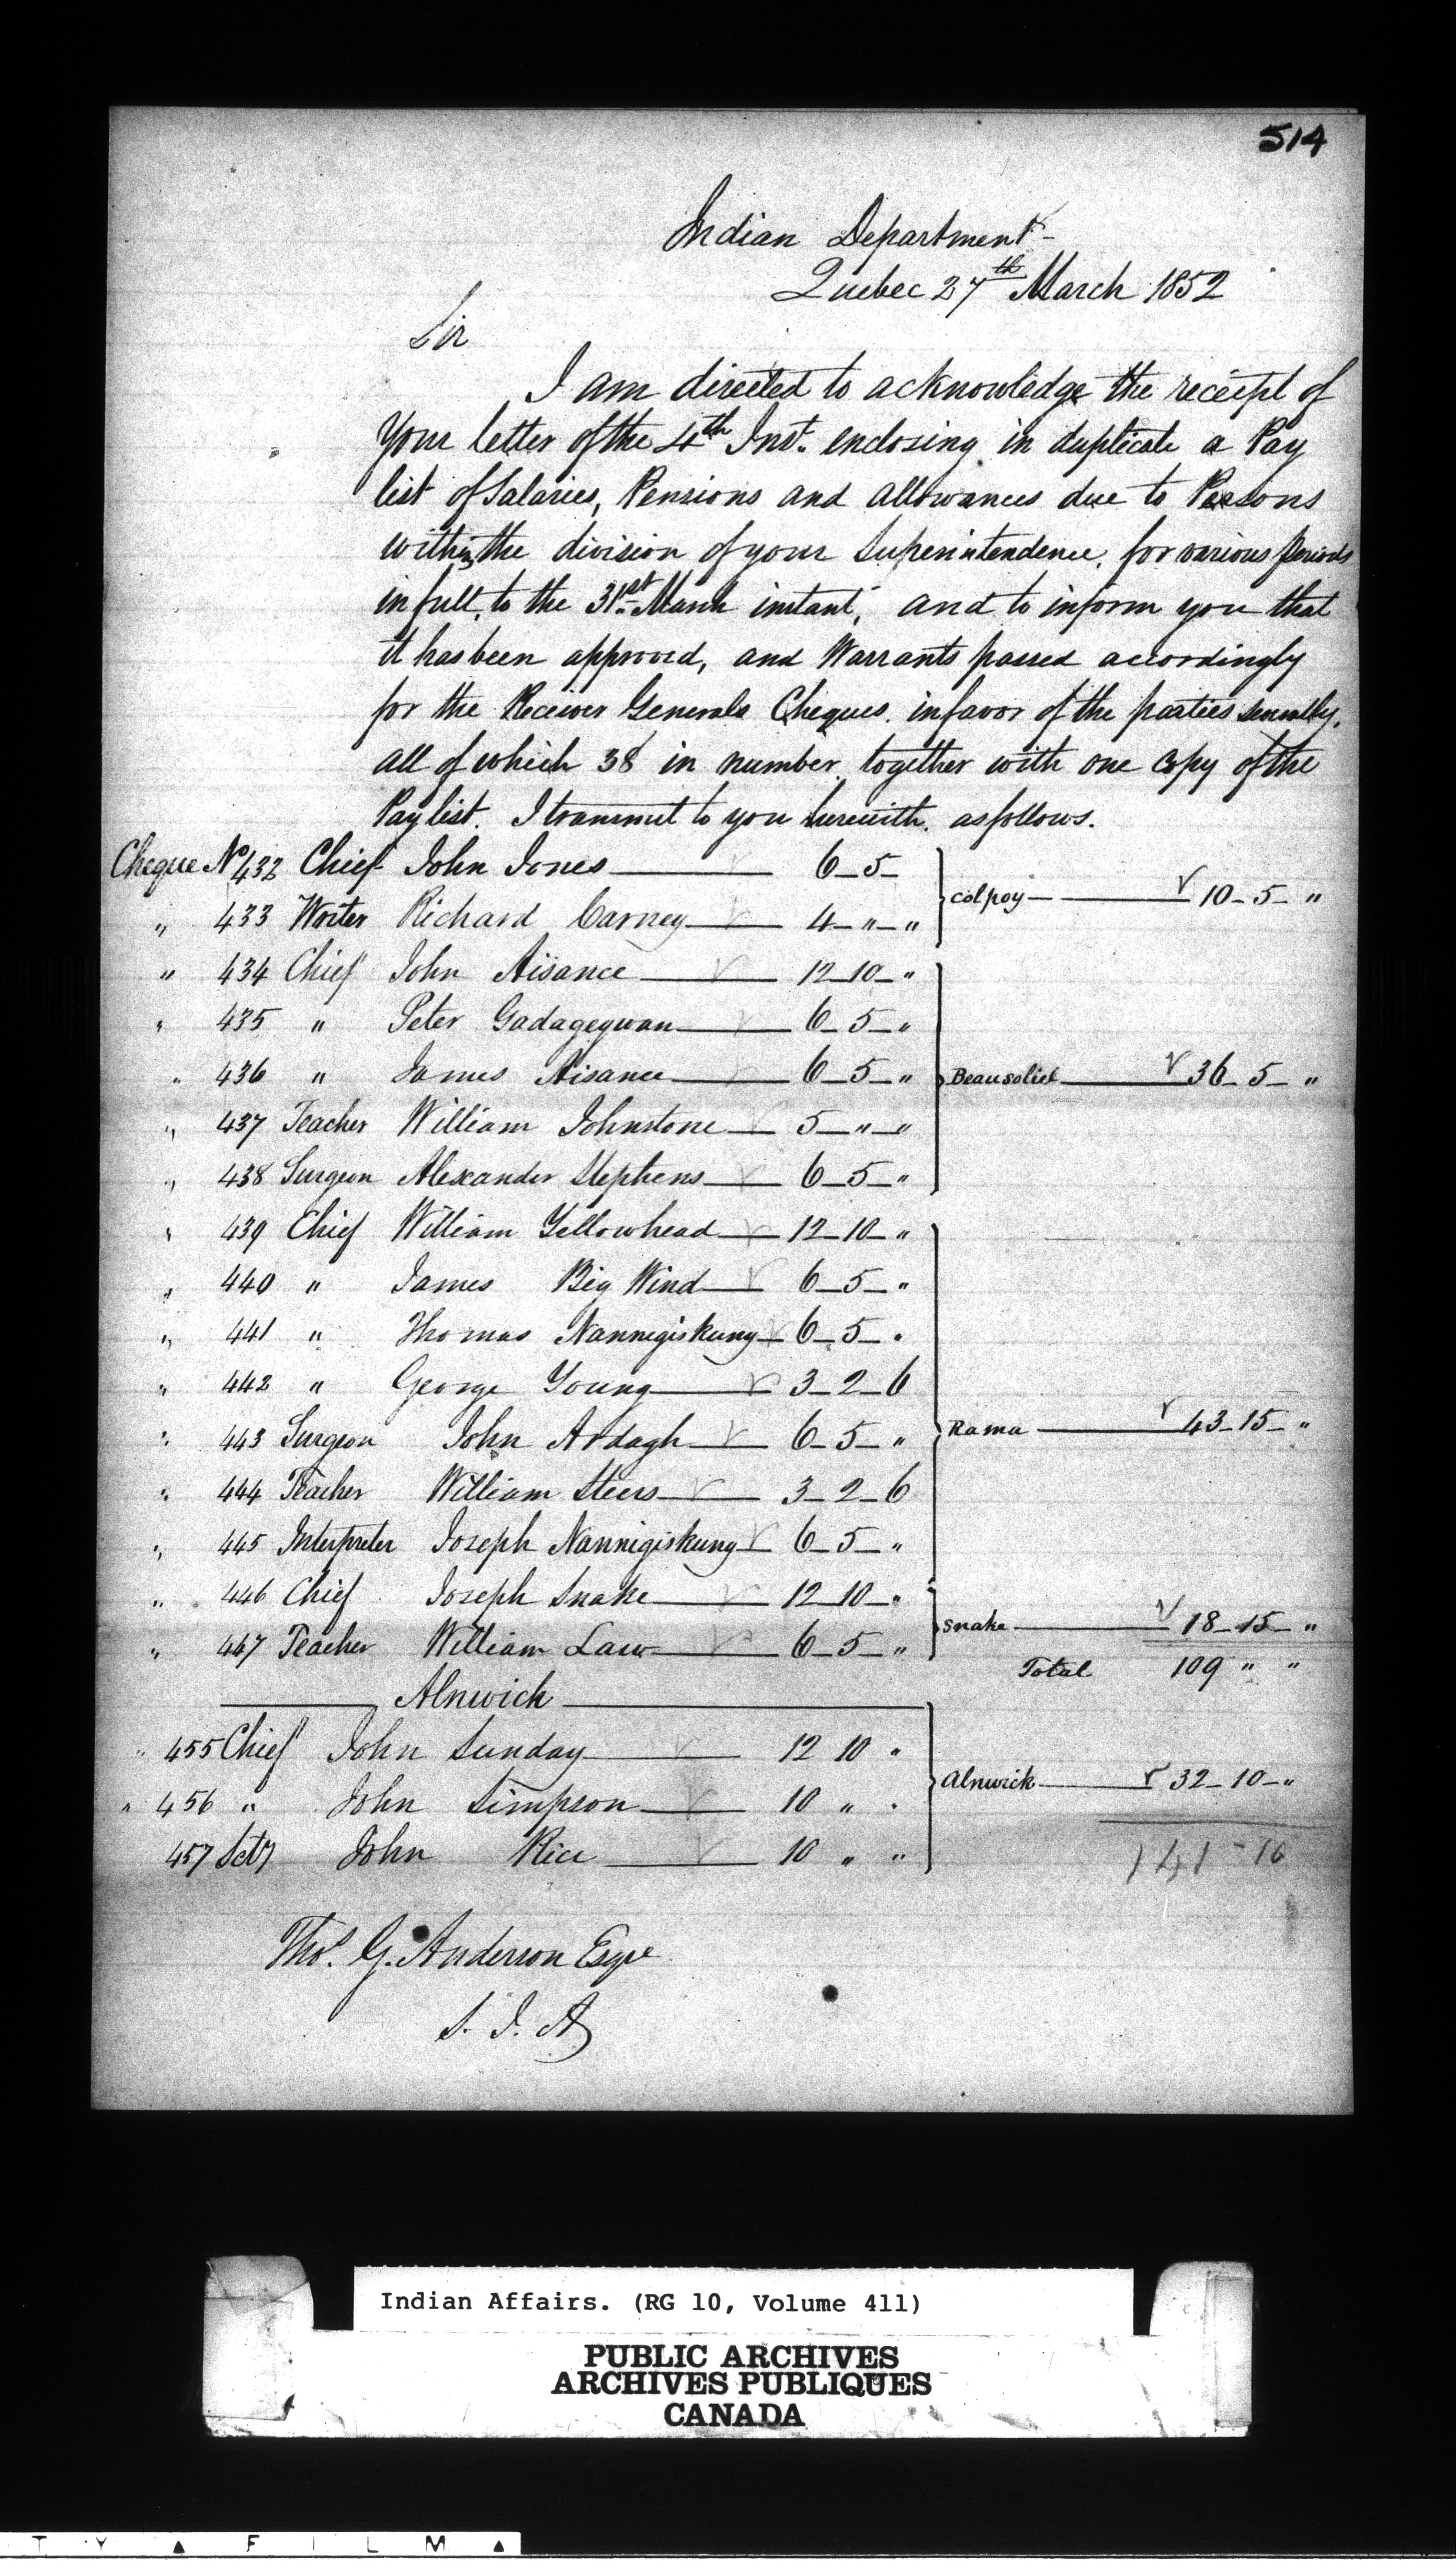 514
Indian Department -
Quebec 27th March 1852
Sir
I am directed to acknowledge the receipt of
Your letter of the 4th Inst. enclosing in duplicate a Pay
list of Salaries, Pensions and allowances due to Persons
within the division of your Superintendence, for various periods
in full, to the 31st March instant, and to inform you that
it has been approved, and Warrants passed accordingly
for the Receiver Generals Cheques. in favor of the parties severally,
all of which 38 in number, together with one Copy of the
Pay list. I transmit to you herewith. as follows.
Cheque No 432 Chief John Jones 6_5_
" 433 Writer Richard Carney 4_"_"
Colpoy 10_5_"
" 434 Chief John Aisance 12_10_"
" 435 " Peter Gadagegwan 6_5_"
" 436 " James Aisance 6_5_"
Beausoliel 36_5_"
" 437 Teacher William Johnstone 5_"_"
" 438 Surgeon Alexander Stephens 6_5_"
" 439 Chief William Yellowhead 12_10_"
" 440 " James Big Wind 6_5_"
" 441 " Thomas Nannegiskung 6_5_"
" 442 " George Young 3_2_6
" 443 Surgeon John Ardagh 6_5_"
Rama 43_15_"
" 444 Teacher William Steers 3_2_6
" 445 Interpreter Joseph Nannigiskung 6_5_"
" 446 Chief Joseph Snake 12_10_"
" 447 Teacher William Law 6_5_"
Snake 18_15_"
Total 109 " "
Alnwick
" 455 Chief John Sunday 12 10 "
" 456 " John Simpson 10 " "
Alnwick 32_10_"
457 John Rice 10 " "
141-10
Thos. G. Anderson Esqre
S. I. A
Indian Affairs. (RG 10, Volume 411)
PUBLIC ARCHIVES
ARCHIVES PUBLIQUES
CANADA
T Y ▲ F I L M ▲